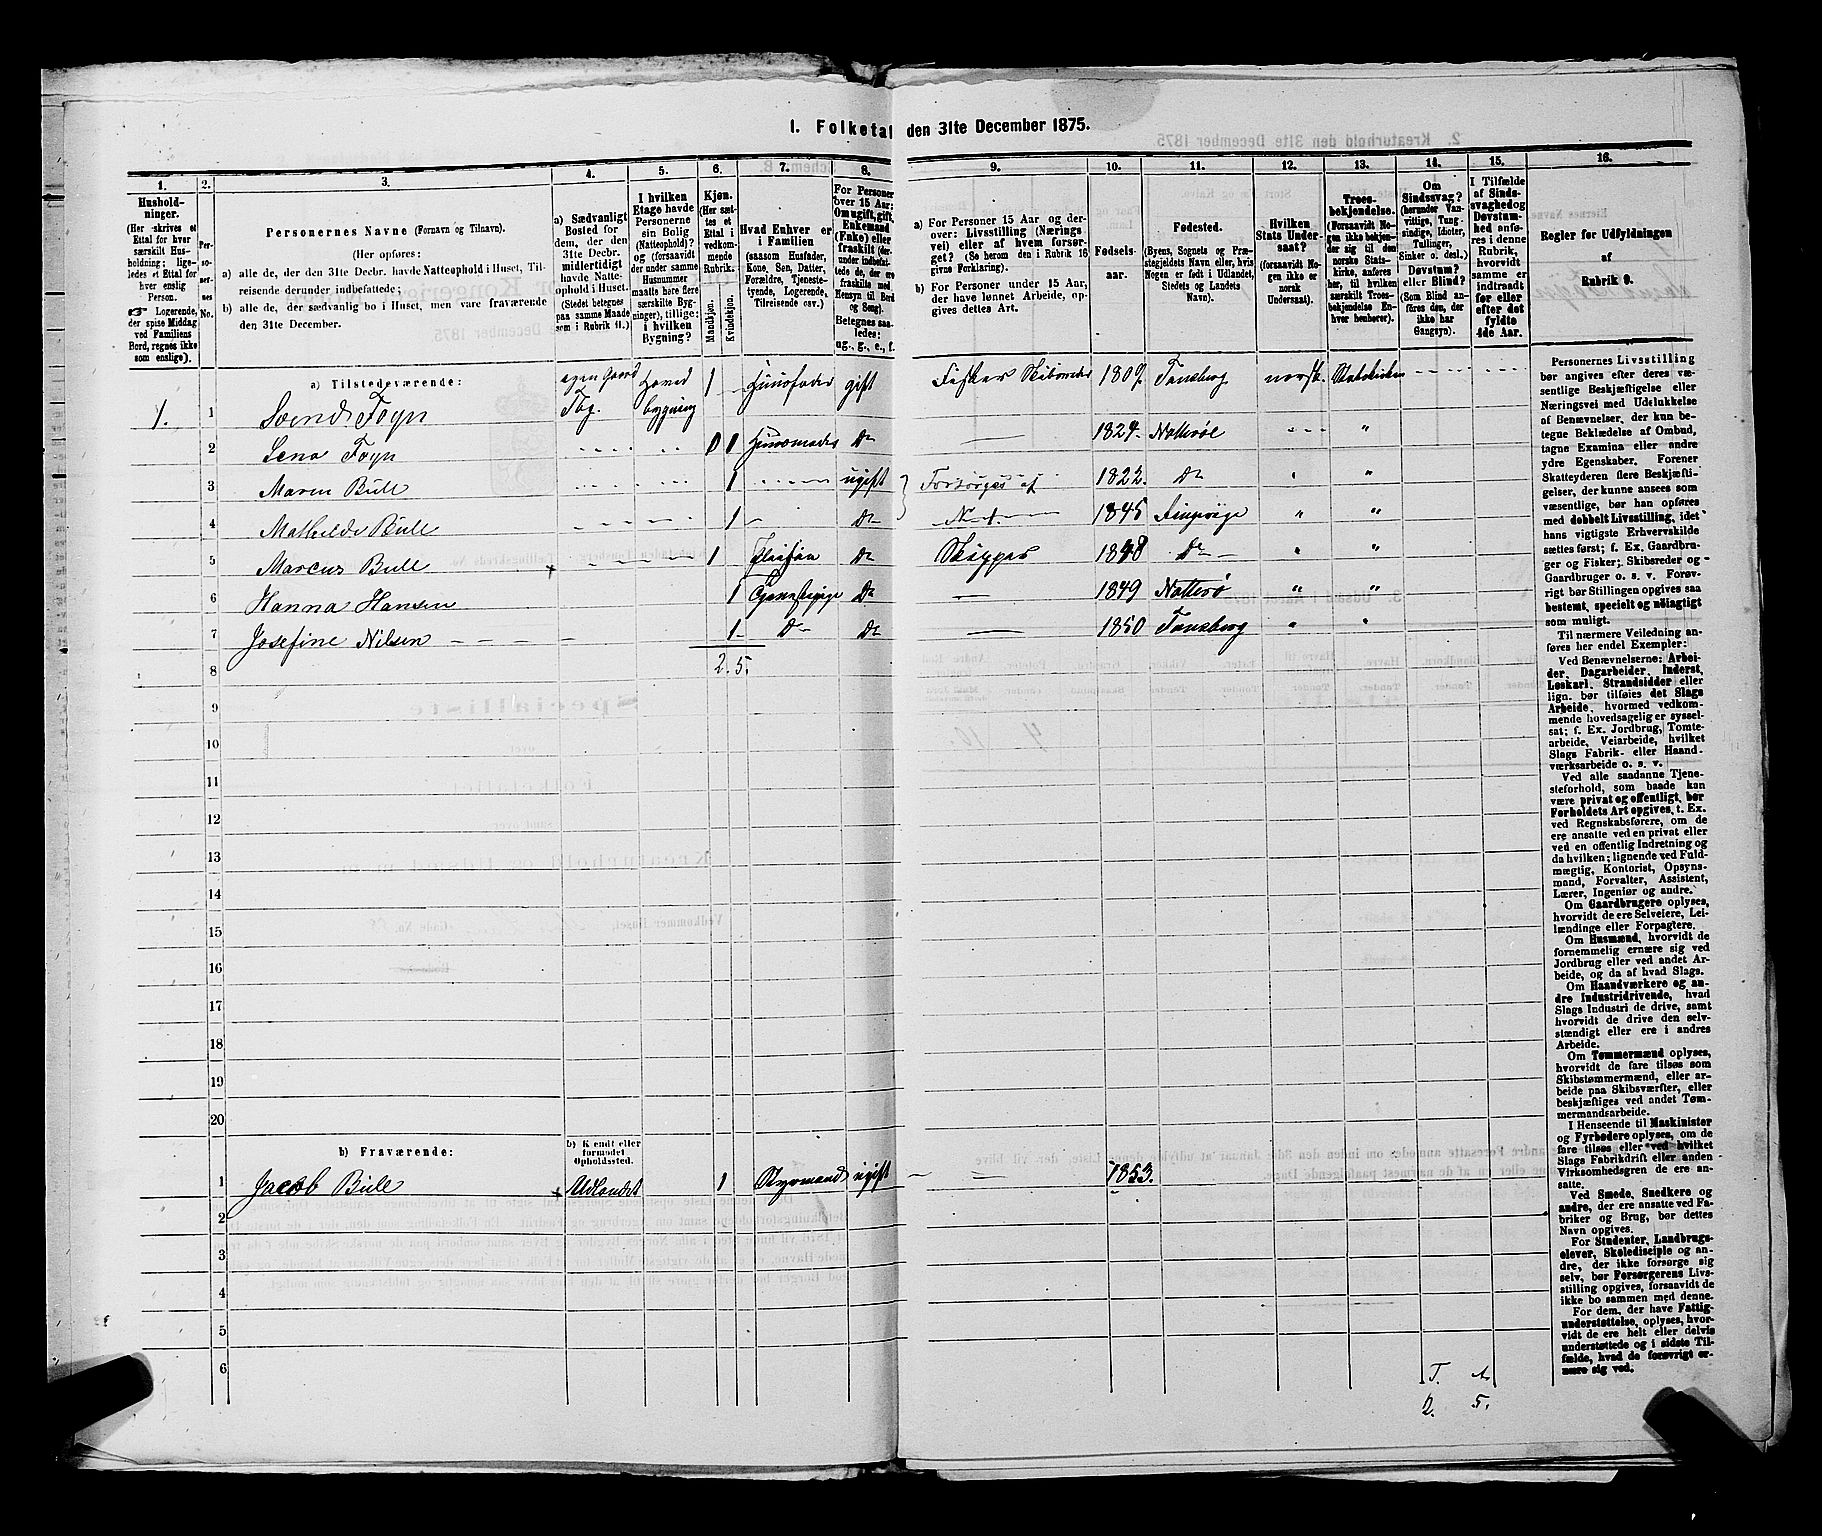 1. Folketal den 31te December 1875.
1.
Hushold-
ninger.
(Her skrives et
Ettal for hver
særskilt Hus-
holdning; lige-
ledes et Ettal for
hver enslig
Person.
☞ Logerende,
der spise Middag
ved Familiens
Bord, regnes ikke
som enslige).
2.
Per-
so-
ner-
nes
No.
3.
Personernes Navne (Fornavn og Tilnavn).
(Her opføres:
a) alle de, der den 31te Decbr. havde Natteophold i Huset, Til-
reisende derunder indbefattede;
b) alle de, der sædvanlig bo i Huset, men vare fraværende
den 31te December.
4.
a) Sædvanligt
Bosted for
dem, der den
31te Decbr.
midlertidigt
havde Natte-
ophold i Huset.
(Stedet betegnes
paa samme Maade
som i Rubrik 11.)
5.
I hvilken
Etage havde
Personerne
sin Bolig
(Natteophold)?
og (forsaavidt
der under samme
Husnummer
maatte høre flere
særskilte Byg-
ninger), tillige:
i hvilken
Bygning?
6.
Kjøn.
(Her sæt-
tes et
Ettal i
vedkom-
mende
Rubrik.
Mandkjøn.
Kvindekjøn.
7.
Hvad Enhver er
i Familien
(saasom Husfader,
Kone, Søn, Datter,
Forældre, Tjeneste-
tyende, Logerende,
Tilreisende osv.)
8.
For Personer
over 15 Aar:
Om ugift, gift,
Enkemand
(Enke) eller
fraskilt (der-
under indbefat-
tede de, der ere
fraskilte med
Hensyn til Bord
og Seng).
Betegnes saa-
ledes:
ug., g., e., f.
9.
a) For Personer 15 Aar og der-
over: Livsstilling (Nærings-
vei) eller af hvem forsør-
get? (Se herom den i Rubrik 16
givne Forklaring).
b) For Personer under 15 Aar,
der have lønnet Arbeide, op-
gives dettes Art.
10.
Fødsels-
aar.
11.
Fødested.
(Byens, Sognets og Præ-
stegjeldets Navn eller, hvis
Nogen er født i Udlandet,
Stedets og Landets
Navn).
12.
Hvilken
Stats Under-
saat?
(forsaavidt No-
gen ikke er
norsk
Undersaat).
13.
Troes-
bekjendelse.
(Forsaavidt No-
gen ikke bekjen-
der sig til den
norske Stats-
kirke, anføres
her, til hvilken
særskilt Troes-
bekjendelse En-
hver henhører).
14.
Om
Sindssvag?
(herunder Van-
vittige, Tung-
sindige, Idioter,
Tullinger,
Sinker o. desl.)
Døvstum?
eller Blind?
(Som Blind an-
føres den, der
ikke har
Gangsyn).
15.
I Tilfælde
af Sinds-
svaghed og
Døvstum-
hed anfø-
res i denne
Rubrik,
hvorvidt
samme er
indtraadt
før eller
efter det
fyldte
4de Aar.
16.
Regler for Udfyldningen
af
Rubrik 9.
a) Tilstedeværende:
1. 1 Svend Foyn egen Gaard Tbg. Hoved bygning 1 Huusfader gift Fisker Skibsreder 1809. Tønsberg norsk. Statskirken
2 Lena Foyn 1 Huusmoder Do 1824. Nøtterøe
3 Maren Bull 1 ugift Forsørges af 1822. Do
4 Mathilde Bull 1 Do 1845
5 Marcus Bull 1 Do Skipper 1848 Do
6 Hanna Hansen 1 Do 1849 Nøtterø
7 Josefine Nilsen 1 Do Do 1850 Tønsberg
8 2. 5.
9
10
11
12
13
14
15
16
17
18
19
20
b) Fraværende:
b) Kendt eller
formodet
Opholdssted.
1 Jacob Bull Udlandet 1 Styrmand ugift 1853.
2
3
4
5
6
T. A.
2. 5.
Personernes Livsstilling
bør angives efter deres væ-
sentlige Beskjæftigelse eller
Næringsvei med Udelukkelse
af Benævnelser, der kun be-
tegne Beklædelse af Ombud,
tagne Examina eller andre
ydre Egenskaber. Forener
Skatteyderen flere Beskjæfti-
gelser, der kunne ansees som
væsentlige, bør han opføres
med dobbelt Livsstilling, idet
hans vigtigste Erhvervskilde
sættes først; f. Ex. Gaardbru-
ger og Fisker; Skibsreder og
Gaardbruger o. s. v. Forøv-
rigt bør Stillingen opgives saa
bestemt, specielt og nøiagtigt
som muligt.
Til nærmere Veiledning an-
føres her endel Exempler:
Ved Benævnelserne: Arbei-
der, Dagarbeider, Inderst,
Løskarl, Strandsidder eller
lign. bør tilføies det Slags
Arbeide, hvormed vedkom-
mende hovedsagelig er syssel-
sat; f. Ex. Jordbrug, Tomte-
arbeide, Veiarbeide, hvilket
Slags Fabrik- eller Haand-
værksarbeide o. s. v.
Ved alle saadanne Tjene-
steforhold, som baade kan
være privat og offentligt, bør
Forholdets Art opgives, t. Ex.
ved Regnskabsførere, om de
ere ansatte ved en privat eller
ved en offentlig Indretning og
da hvilken; lignende ved Fuld-
mægtig, Kontorist, Opsyns-
mand, Forvalter, Assistent,
Lærer, Ingeniør og andre.
Om Gaardbrugere oplyses,
hvorvidt de ere Selveiere, Lei-
lændinge eller Forpagtere.
Om Husmænd, hvorvidt de
fornemmelig ernære sig ved
Jordbrug eller ved andet Ar-
beide, og da af hvad Slags.
Om Haandværkere og an-
dre Industridrivende, hvad
Slags Industri de drive, samt
hvorvidt de drive den selv-
stændigt eller ere i andres
Arbeide.
Om Tømmermænd oplyses,
hvorvidt de fare tilsøs som
Skibstømmermænd, eller ar-
beide paa Skibsværfter, eller
beskjæftiges ved andet Tøm-
mermandsarbeide.
I Henseende til Maskinister
og Fyrbødere oplyses, om de
fare tilsøs eller ved hvilket
Slags Fabrikdrift eller anden
Virksomhedsgren de ere an-
satte.
Ved Smede, Snedkere og
andre, der ere ansatte ved Fa-
briker og Brug, bør dettes
Navn opgives.
For Studenter, Landbrugs-
elever, Skoledisciple og an-
dre, der ikke forsørge sig
selv, bør Forsørgerens Livs-
stilling opgives, forsaavidt de
ikke bo sammen med denne.
For dem, der have Fattig-
understøttelse, oplyses, hvor-
vidt de ere helt eller delvis
understøttede og i sidste Til-
fælde, hvad de forøvrigt er-
nære sig ved.